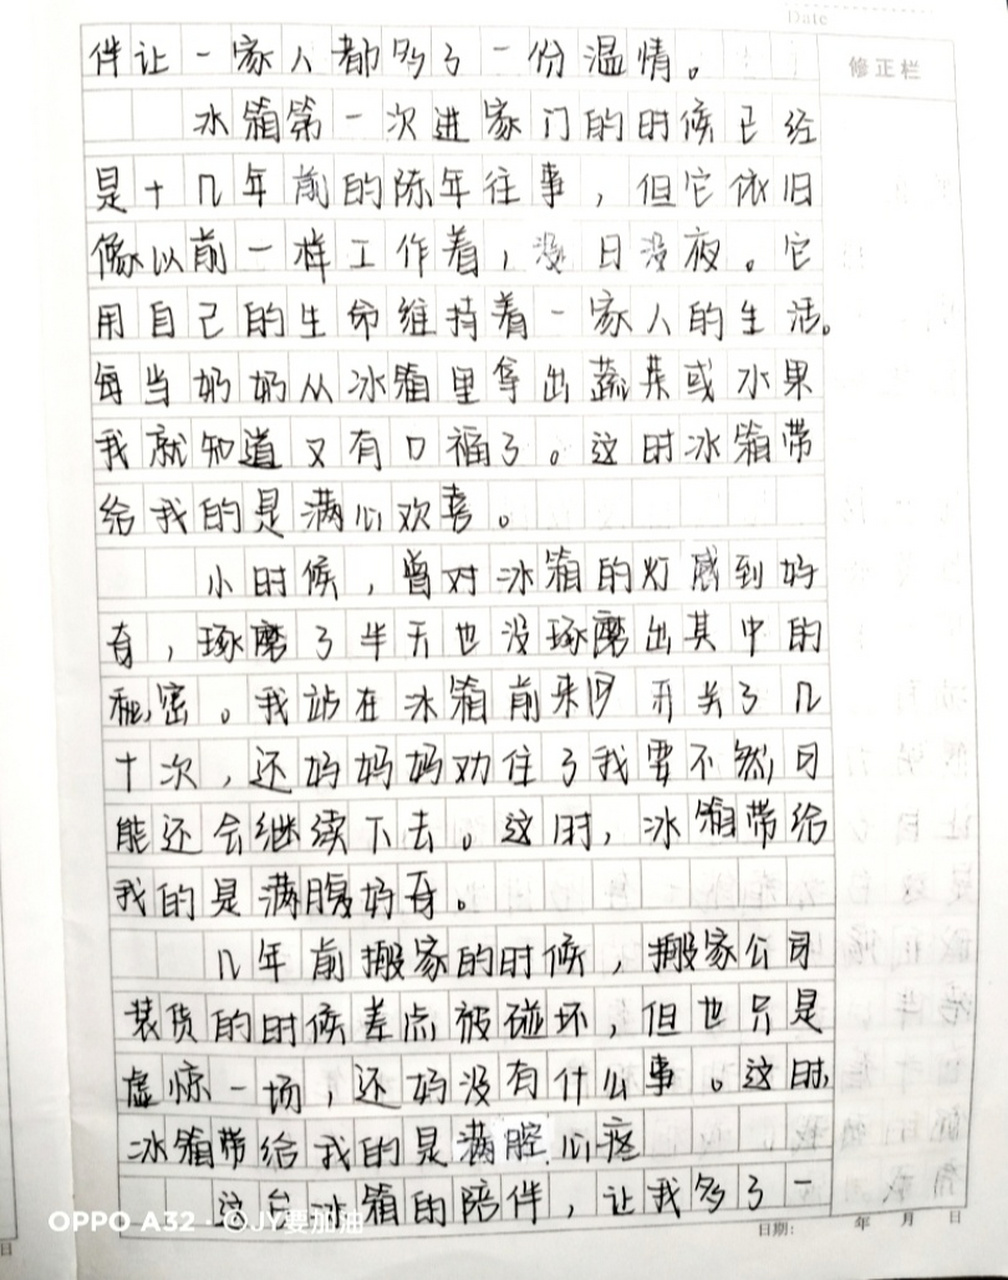 Date
修正栏
伴让一家人都多了一份温情。
冰箱第一次进家门的时候已经
是十几年前的陈年往事，但它依旧
像以前一样工作着，没日没夜。它
用自己的生命维持着一家人的生活。
每当奶奶从冰箱里拿出蔬菜或水果
我就知道又有口福了。这时冰箱带
给我的是满心欢喜。
小时候，曾对冰箱的灯感到好
奇，琢磨了半天也没琢磨出其中的
秘密。我站在冰箱前来回开关了几
十次，还好妈妈劝住了我要不然可
能还会继续下去。这时，冰箱带给
我的是满腹好奇。
几年前搬家的时候，搬家公司
装货的时候差点被碰坏，但也只是
虚惊一场，还好没有什么事。这时，
冰箱带给我的是满腔心疼
这台冰箱的陪伴，让我多了一
日期： 年 月 日
OPPO A32 · ©JY要加油
日